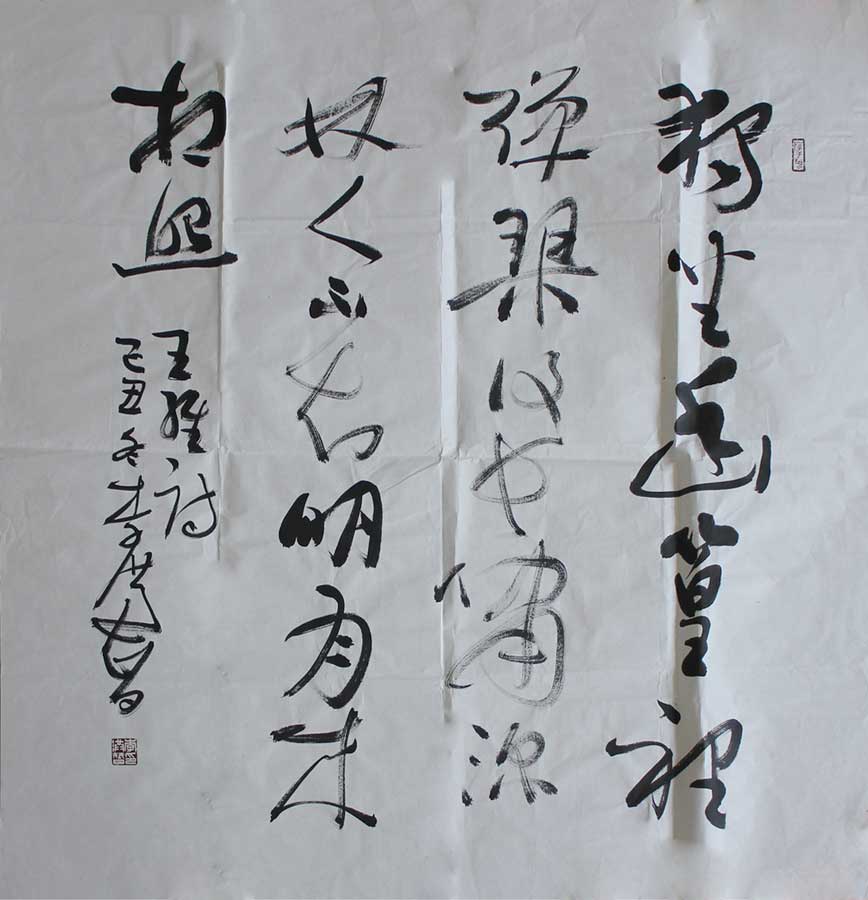 獨坐幽篁裡
彈琴復長嘯深
林人不知明月來
相照
王維詩
己丑冬李